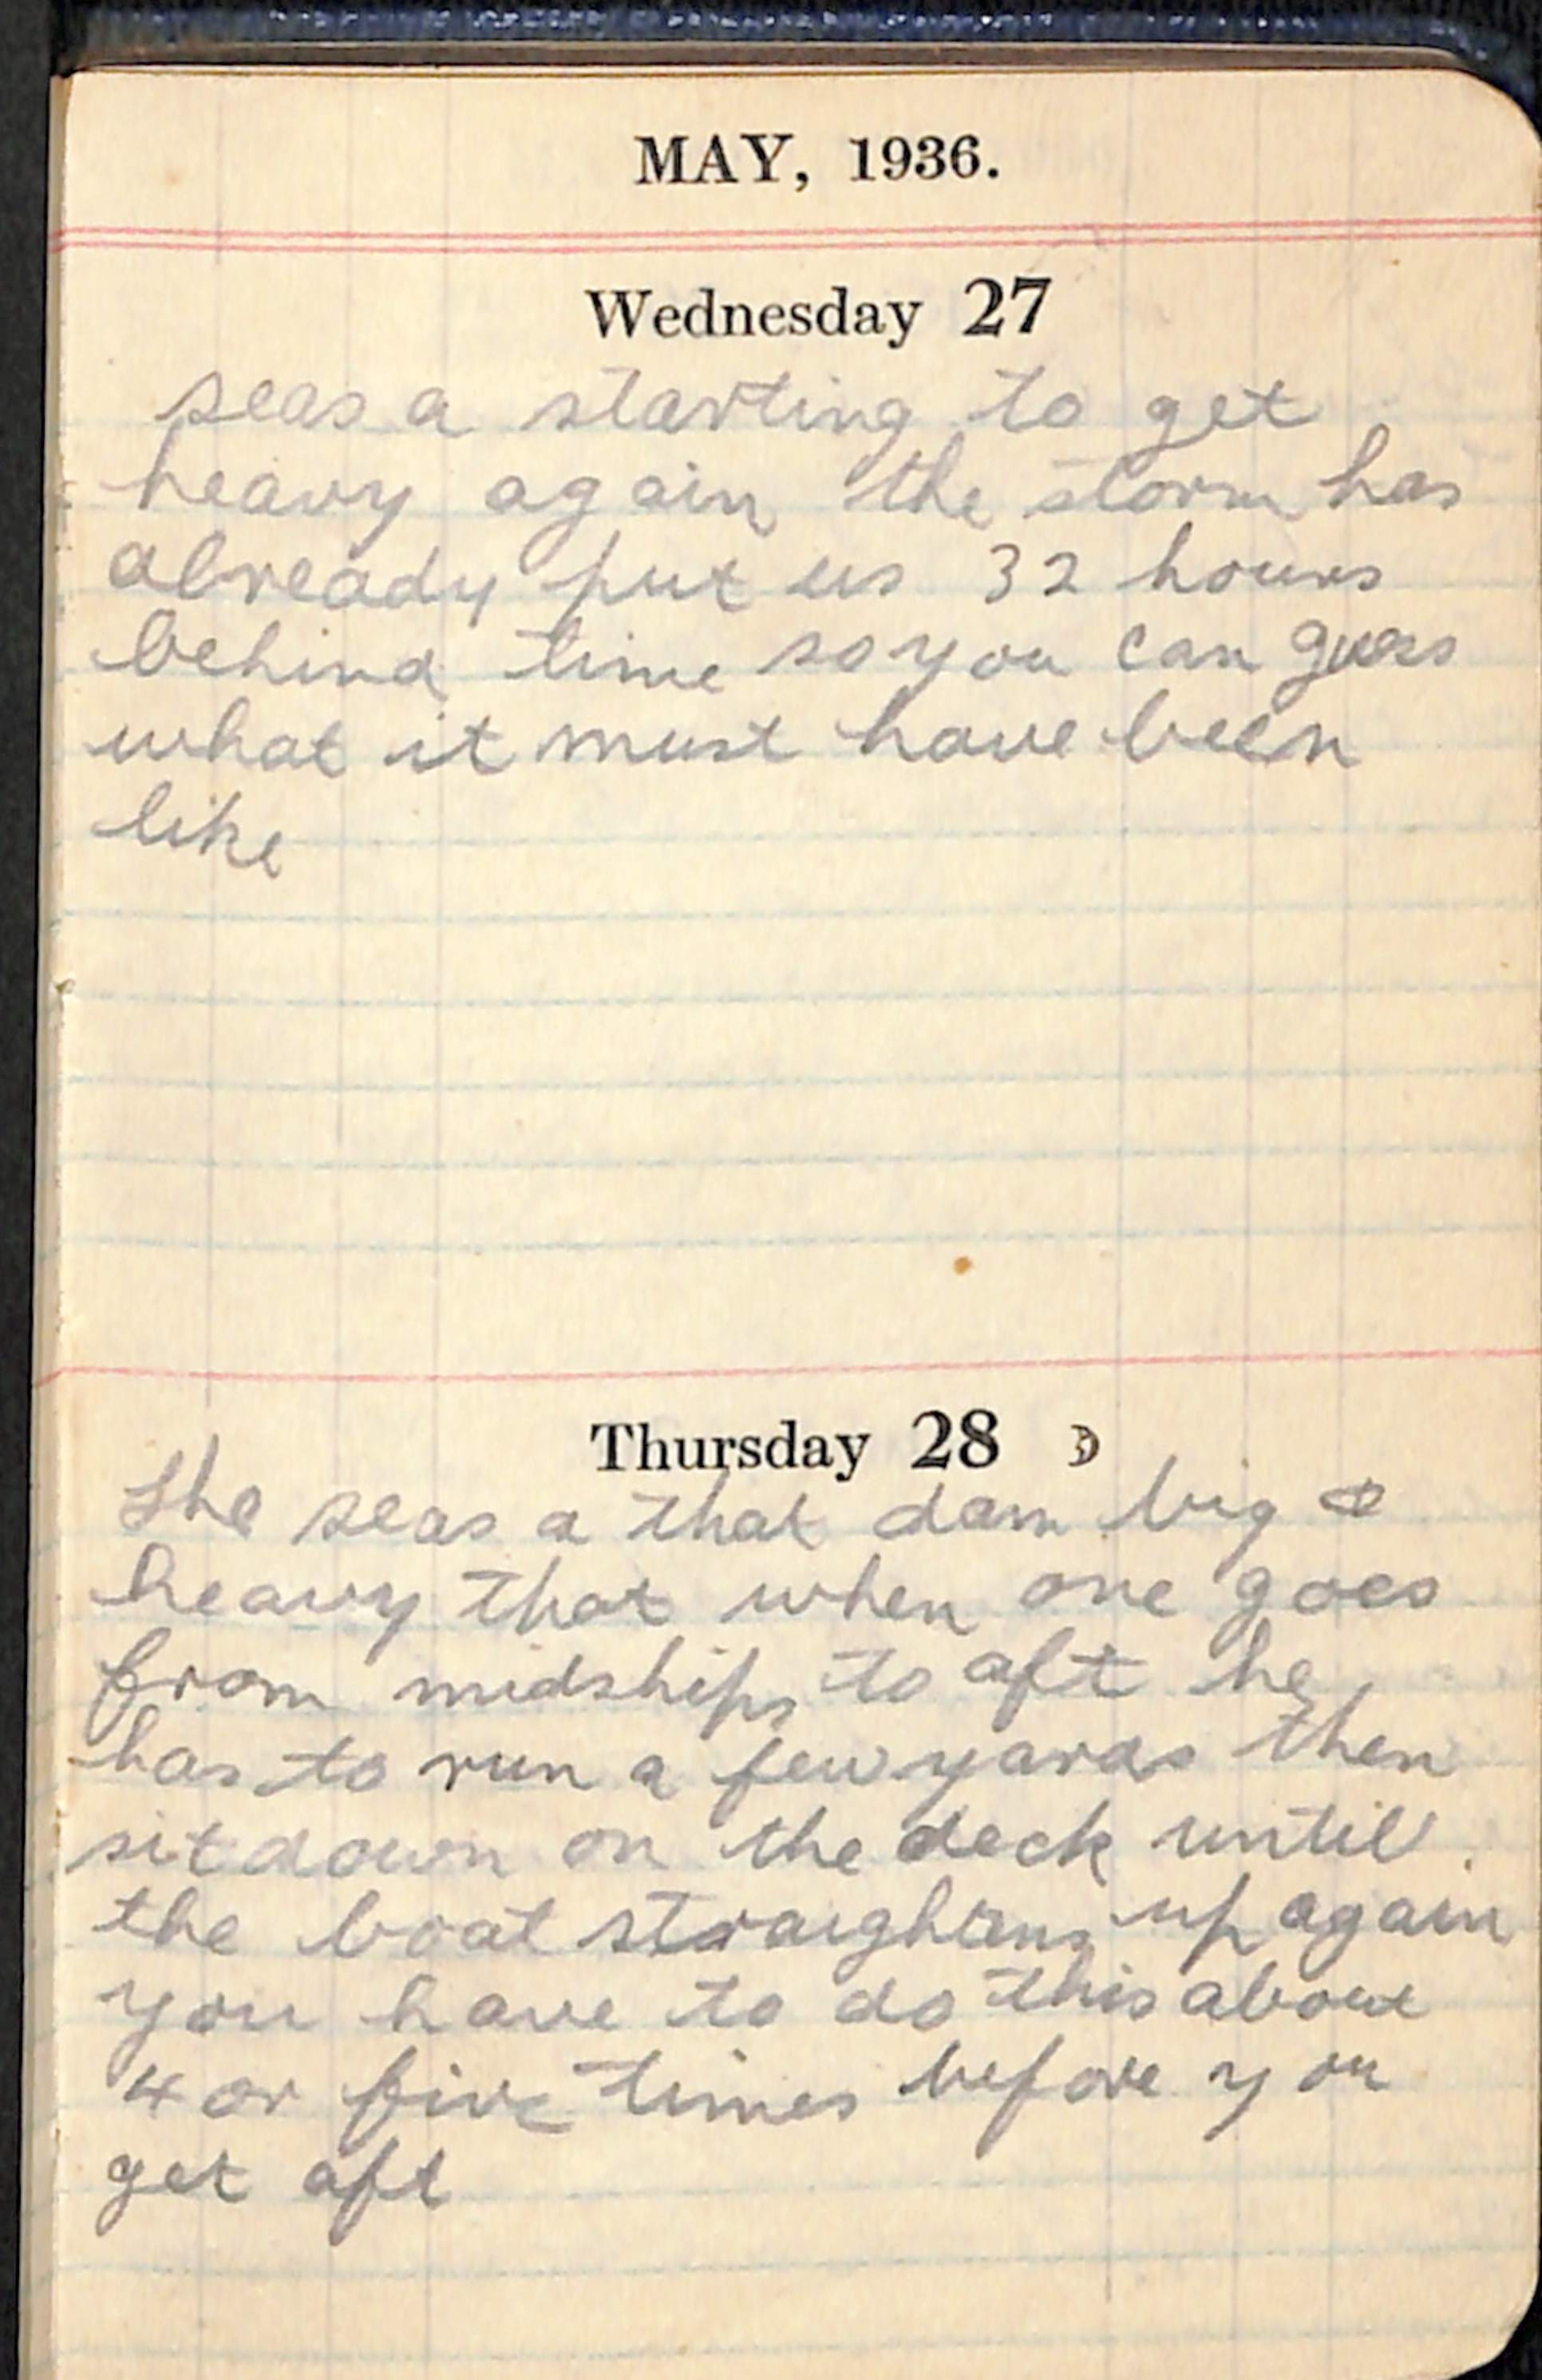 MAY, 1936.
Wednesday 27
seas a starting to get
heavy again the storm has
already put us 32 hours
behind time so you can guess
what it must have been
like
Thursday 28
The seas a that dam big &
heavy that when one goes
from midships to aft he
has to run a few yards then
sit down on the deck until
the boat straightens up again
you have to do this about
4 or five times before you
get aft